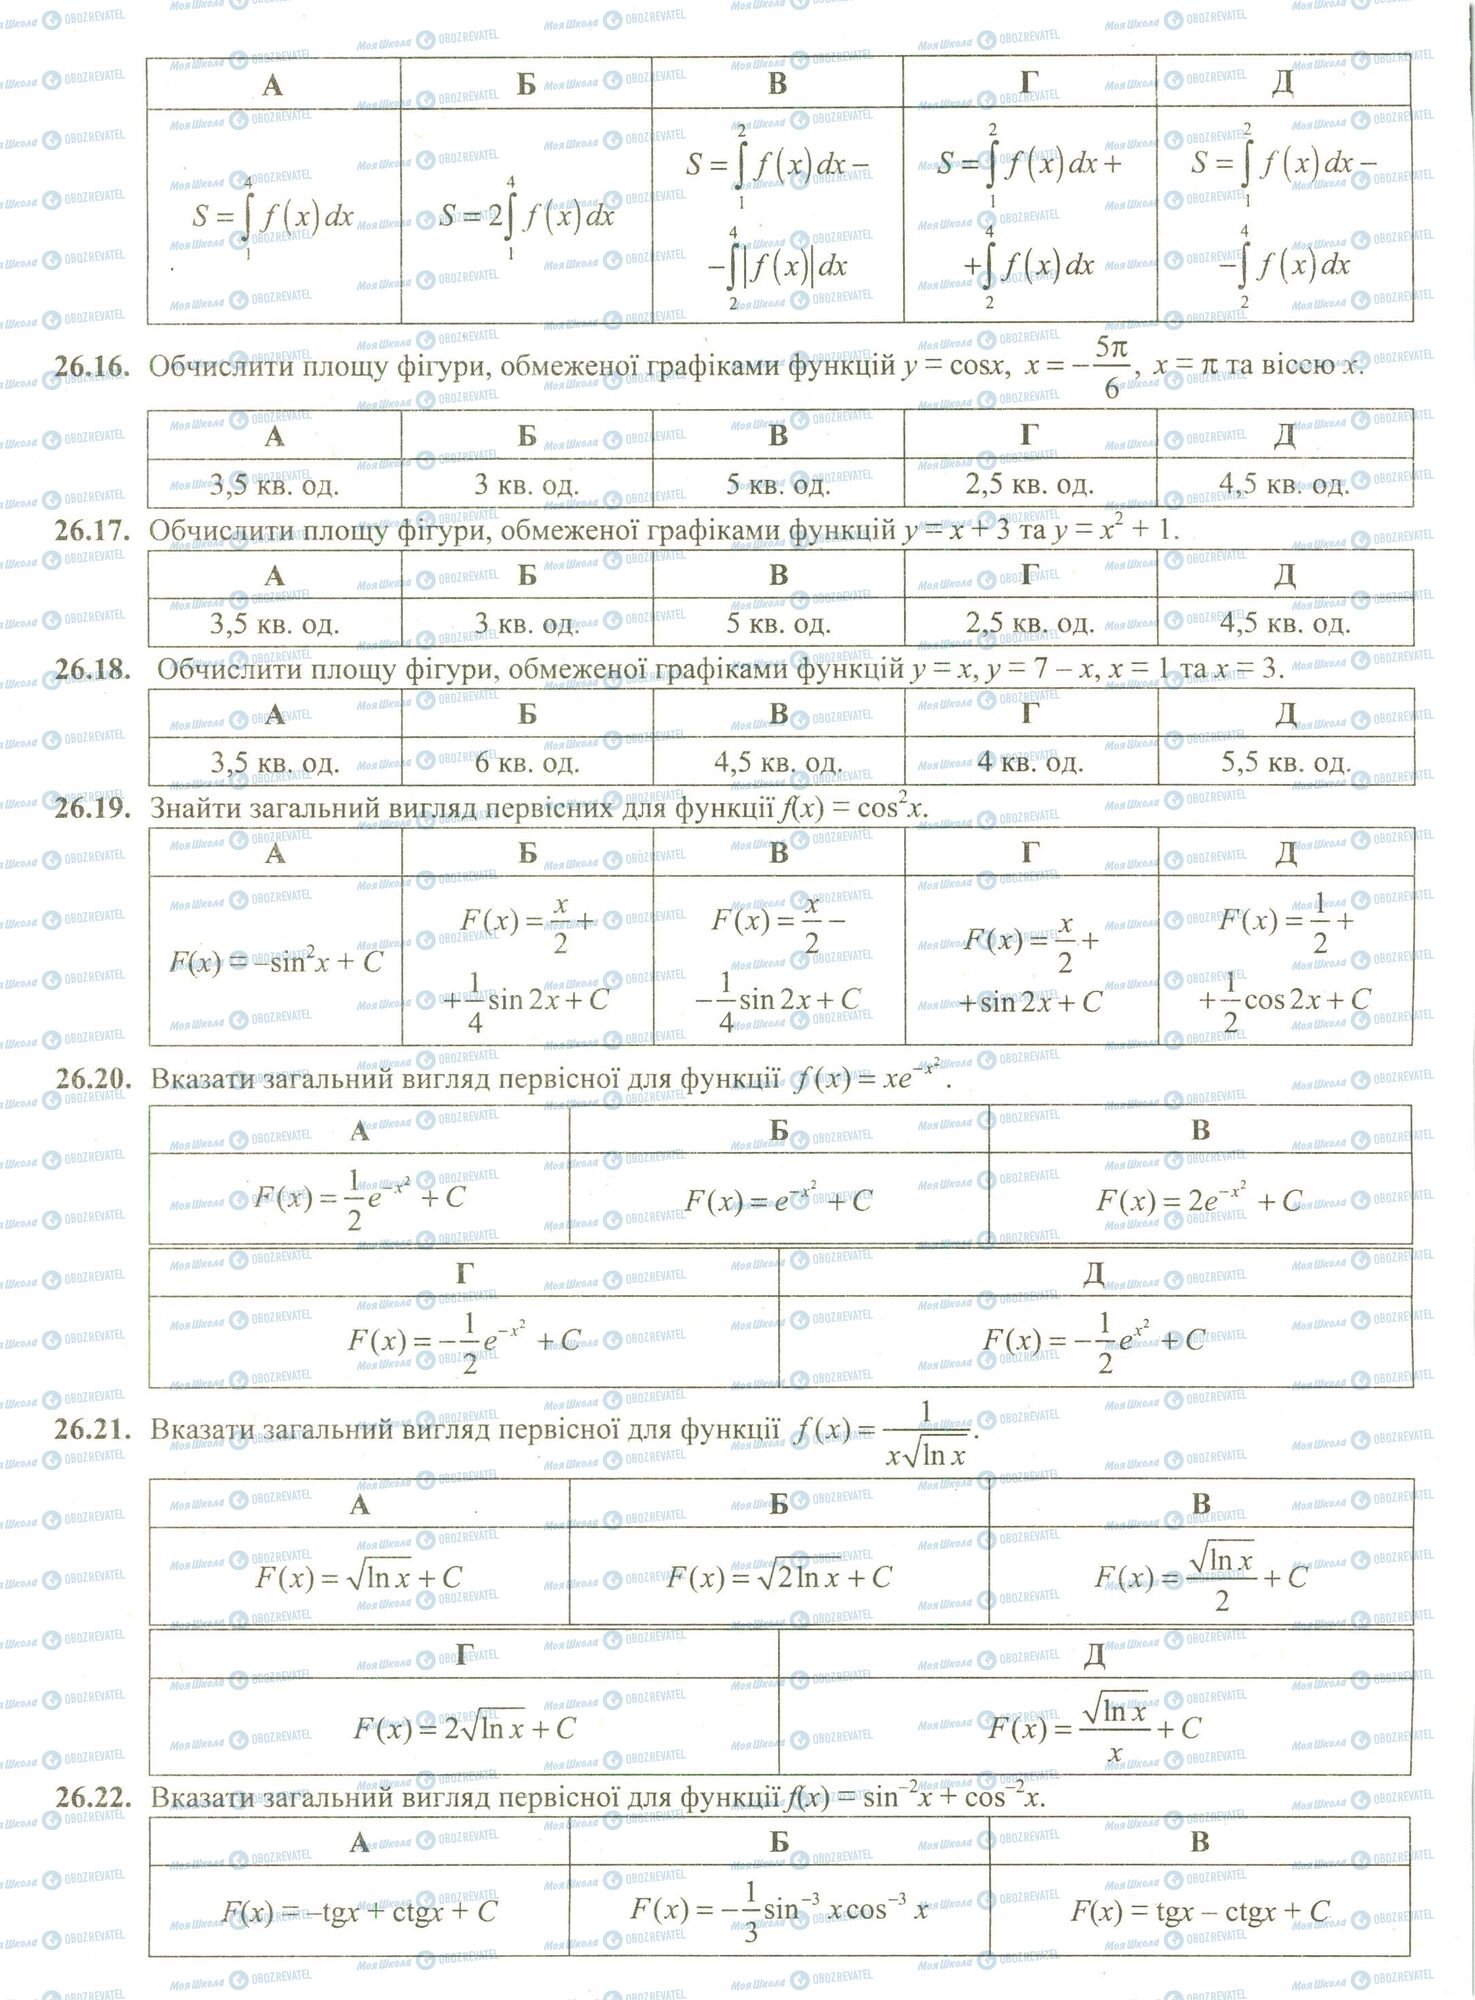 А Б В Г Д
S = ∫₁⁴ f(x)dx
S = 2∫₁⁴ f(x)dx
S = ∫₁² f(x)dx –
–∫₂⁴ |f(x)|dx
S = ∫₁² f(x)dx +
+∫₂⁴ f(x)dx
S = ∫₁² f(x)dx –
–∫₂⁴ f(x)dx
26.16. Обчислити площу фігури, обмеженої графіками функцій y = cosx, x = –5π/6, x = π та віссю x.
А Б В Г Д
3,5 кв. од. 3 кв. од. 5 кв. од. 2,5 кв. од. 4,5 кв. од.
26.17. Обчислити площу фігури, обмеженої графіками функцій y = x + 3 та y = x² + 1.
А Б В Г Д
3,5 кв. од. 3 кв. од. 5 кв. од. 2,5 кв. од. 4,5 кв. од.
26.18. Обчислити площу фігури, обмеженої графіками функцій y = x, y = 7 – x, x = 1 та x = 3.
А Б В Г Д
3,5 кв. од. 6 кв. од. 4,5 кв. од. 4 кв. од. 5,5 кв. од.
26.19. Знайти загальний вигляд первісних для функції f(x) = cos²x.
А Б В Г Д
F(x) = –sin²x + C
F(x) = x/2 +
+1/4 sin 2x + C
F(x) = x/2 –
–1/4 sin 2x + C
F(x) = x/2 +
+sin 2x + C
F(x) = 1/2 +
+1/2 cos 2x + C
26.20. Вказати загальний вигляд первісної для функції f(x) = xe^(–x²).
А Б В
F(x) = 1/2 e^(–x²) + C F(x) = e^(–x²) + C F(x) = 2e^(–x²) + C
Г Д
F(x) = –1/2 e^(–x²) + C F(x) = –1/2 e^(x²) + C
26.21. Вказати загальний вигляд первісної для функції f(x) = 1/(x√(ln x)).
А Б В
F(x) = √(ln x) + C F(x) = √(2 ln x) + C F(x) = √(ln x)/2 + C
Г Д
F(x) = 2√(ln x) + C F(x) = √(ln x)/x + C
26.22. Вказати загальний вигляд первісної для функції f(x) = sin⁻²x + cos⁻²x.
А Б В
F(x) = –tgx + ctgx + C F(x) = –1/3 sin⁻³ x cos⁻³ x F(x) = tgx – ctgx + C
Моя Школа OBOZREVATEL